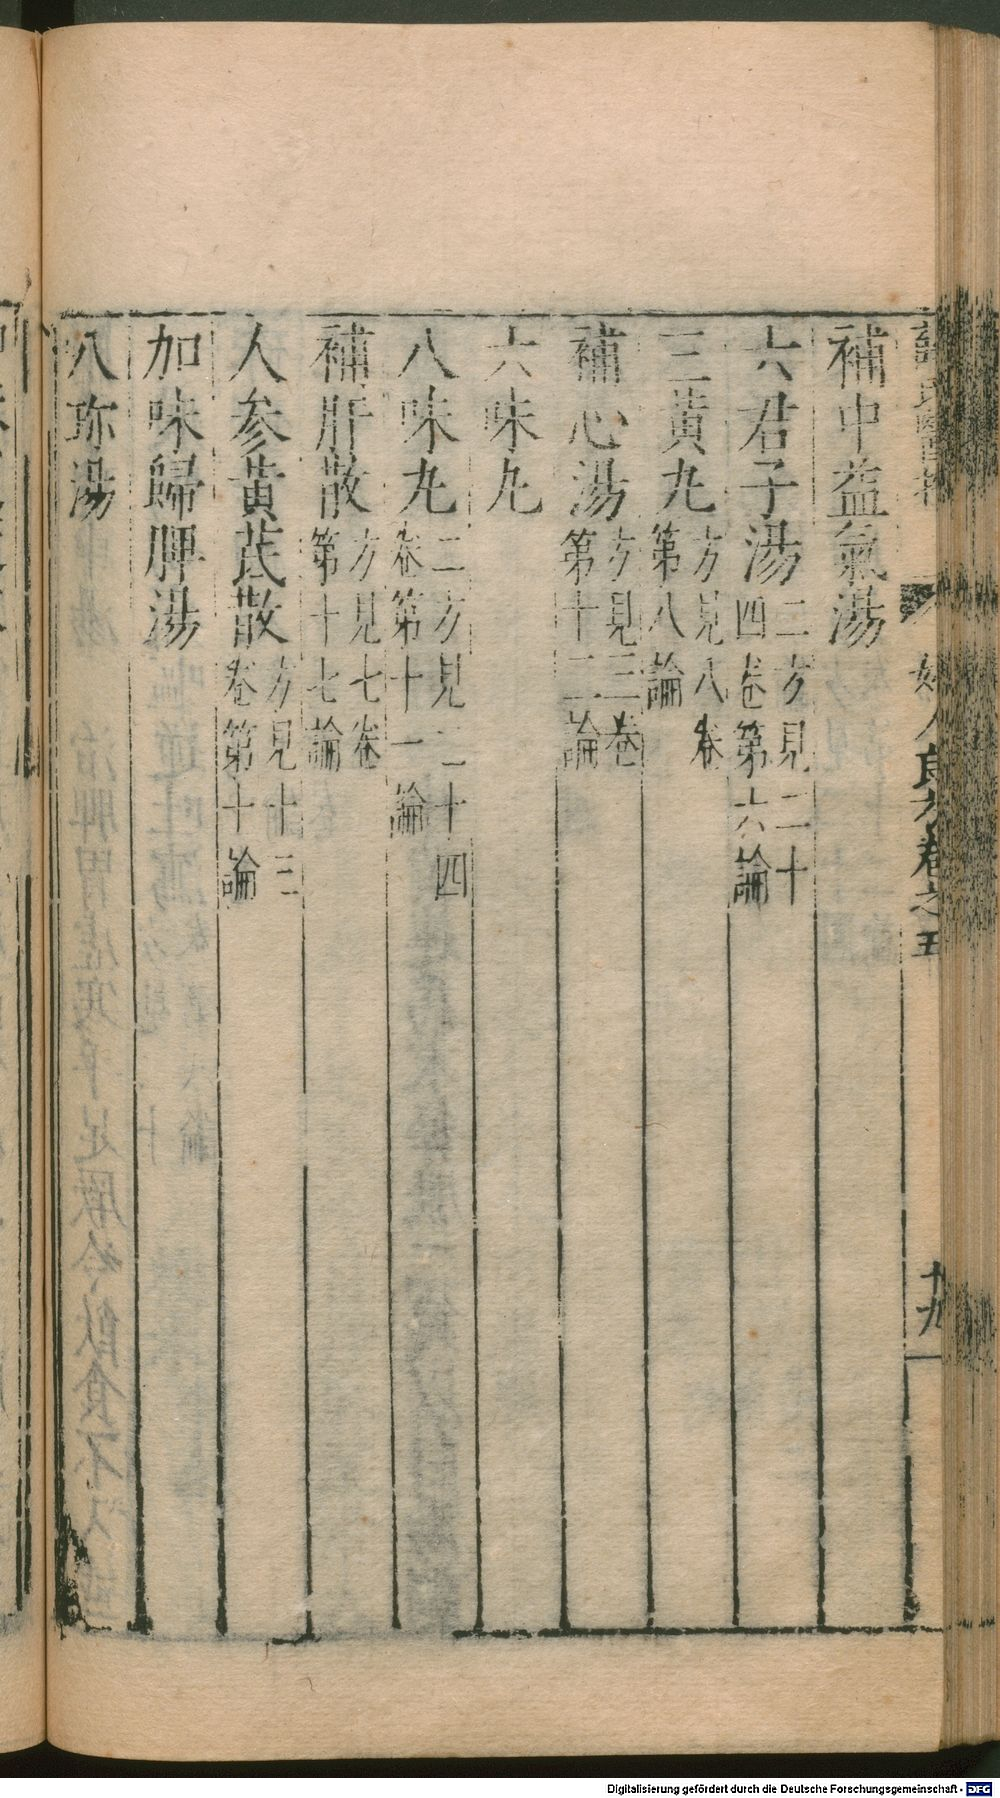 補中益氣湯
六君子湯二方見二十
四卷第六論
三黃丸方見八卷
第八論
補心湯方見三卷
第十二論
六味丸
八味丸二方見二十四
卷第十一論
補肝散方見七卷
第十七論
人參黃芪散方見十三
卷第十論
加味歸脾湯
八珍湯
婦人良方卷之五
十九
Digitalisierung gefördert durch die Deutsche Forschungsgemeinschaft - DFG